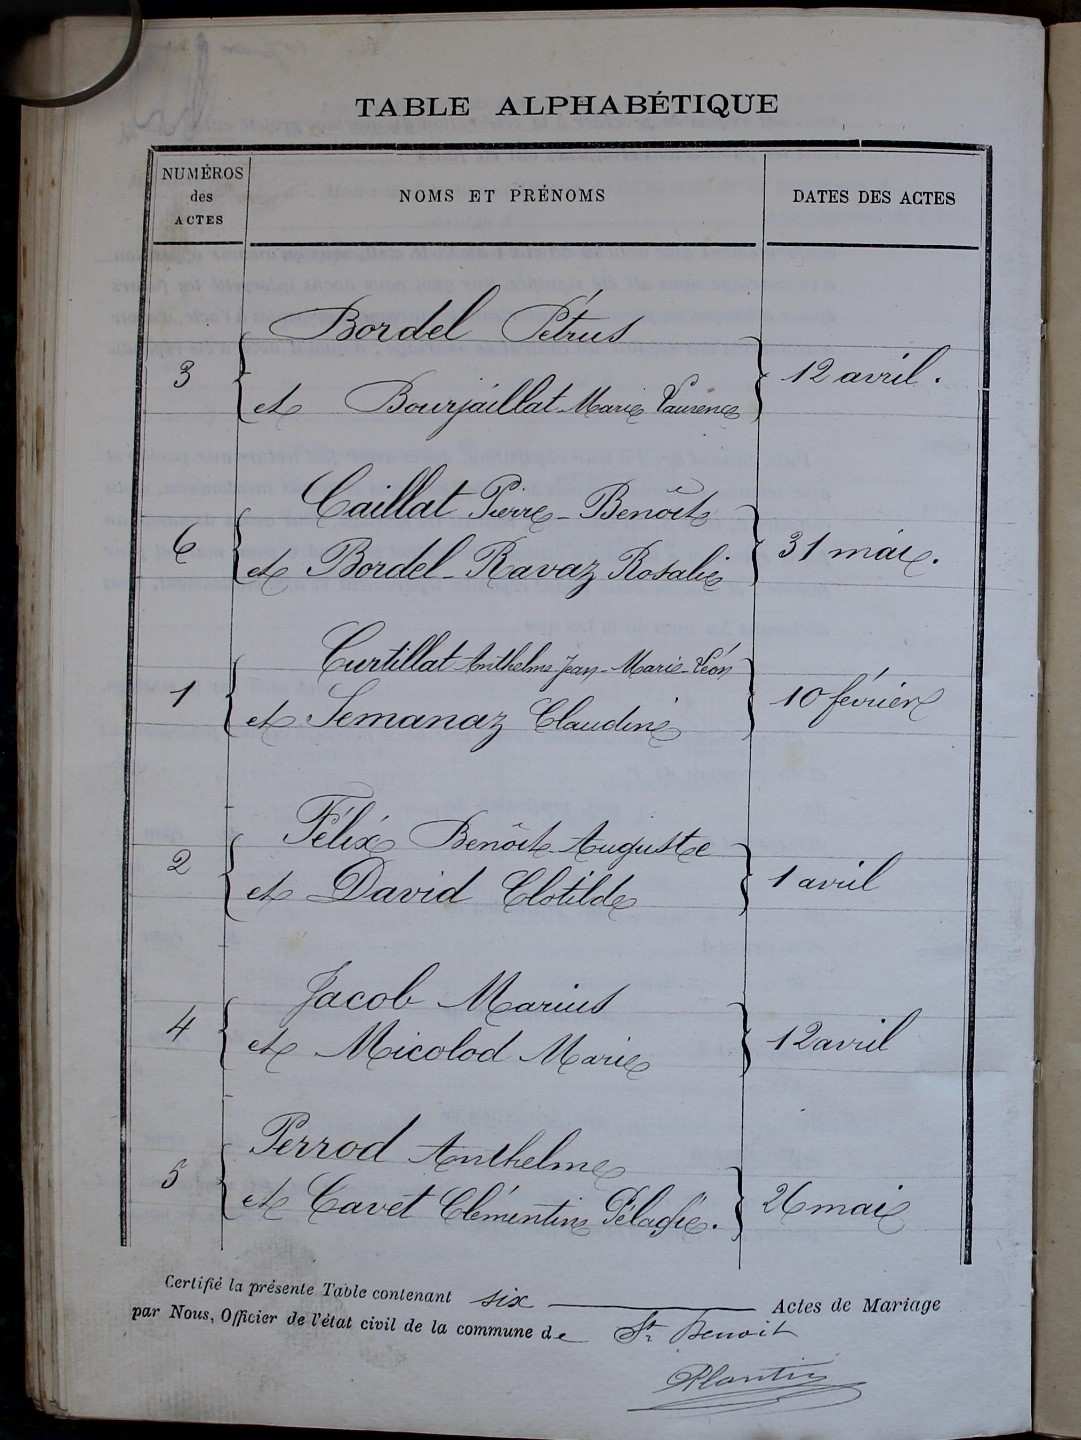 TABLE ALPHABÉTIQUE
NUMÉROS
des
ACTES
NOMS ET PRÉNOMS
DATES DES ACTES
Bordel Pétrus
3
12 avril.
et Bourjaillat Marie Laurence
Caillat Pierre-Benoît
6
31 mai.
et Bordel-Ravaz Rosalie
Curtillat Anthelme Jean-Marie-Léon
1
10 février
et Semanaz Claudine
Félix Benoît Auguste
2
1 avril
et David Clotilde
Jacob Marius
4
12 avril
et Micolod Marie
Perrod Anthelme
5
26 mai
et Cavet Clémentine Pélagie.
Certifié la présente Table contenant six Actes de Mariage
par Nous, Officier de l'état civil de la commune de St Benoit
Plantin